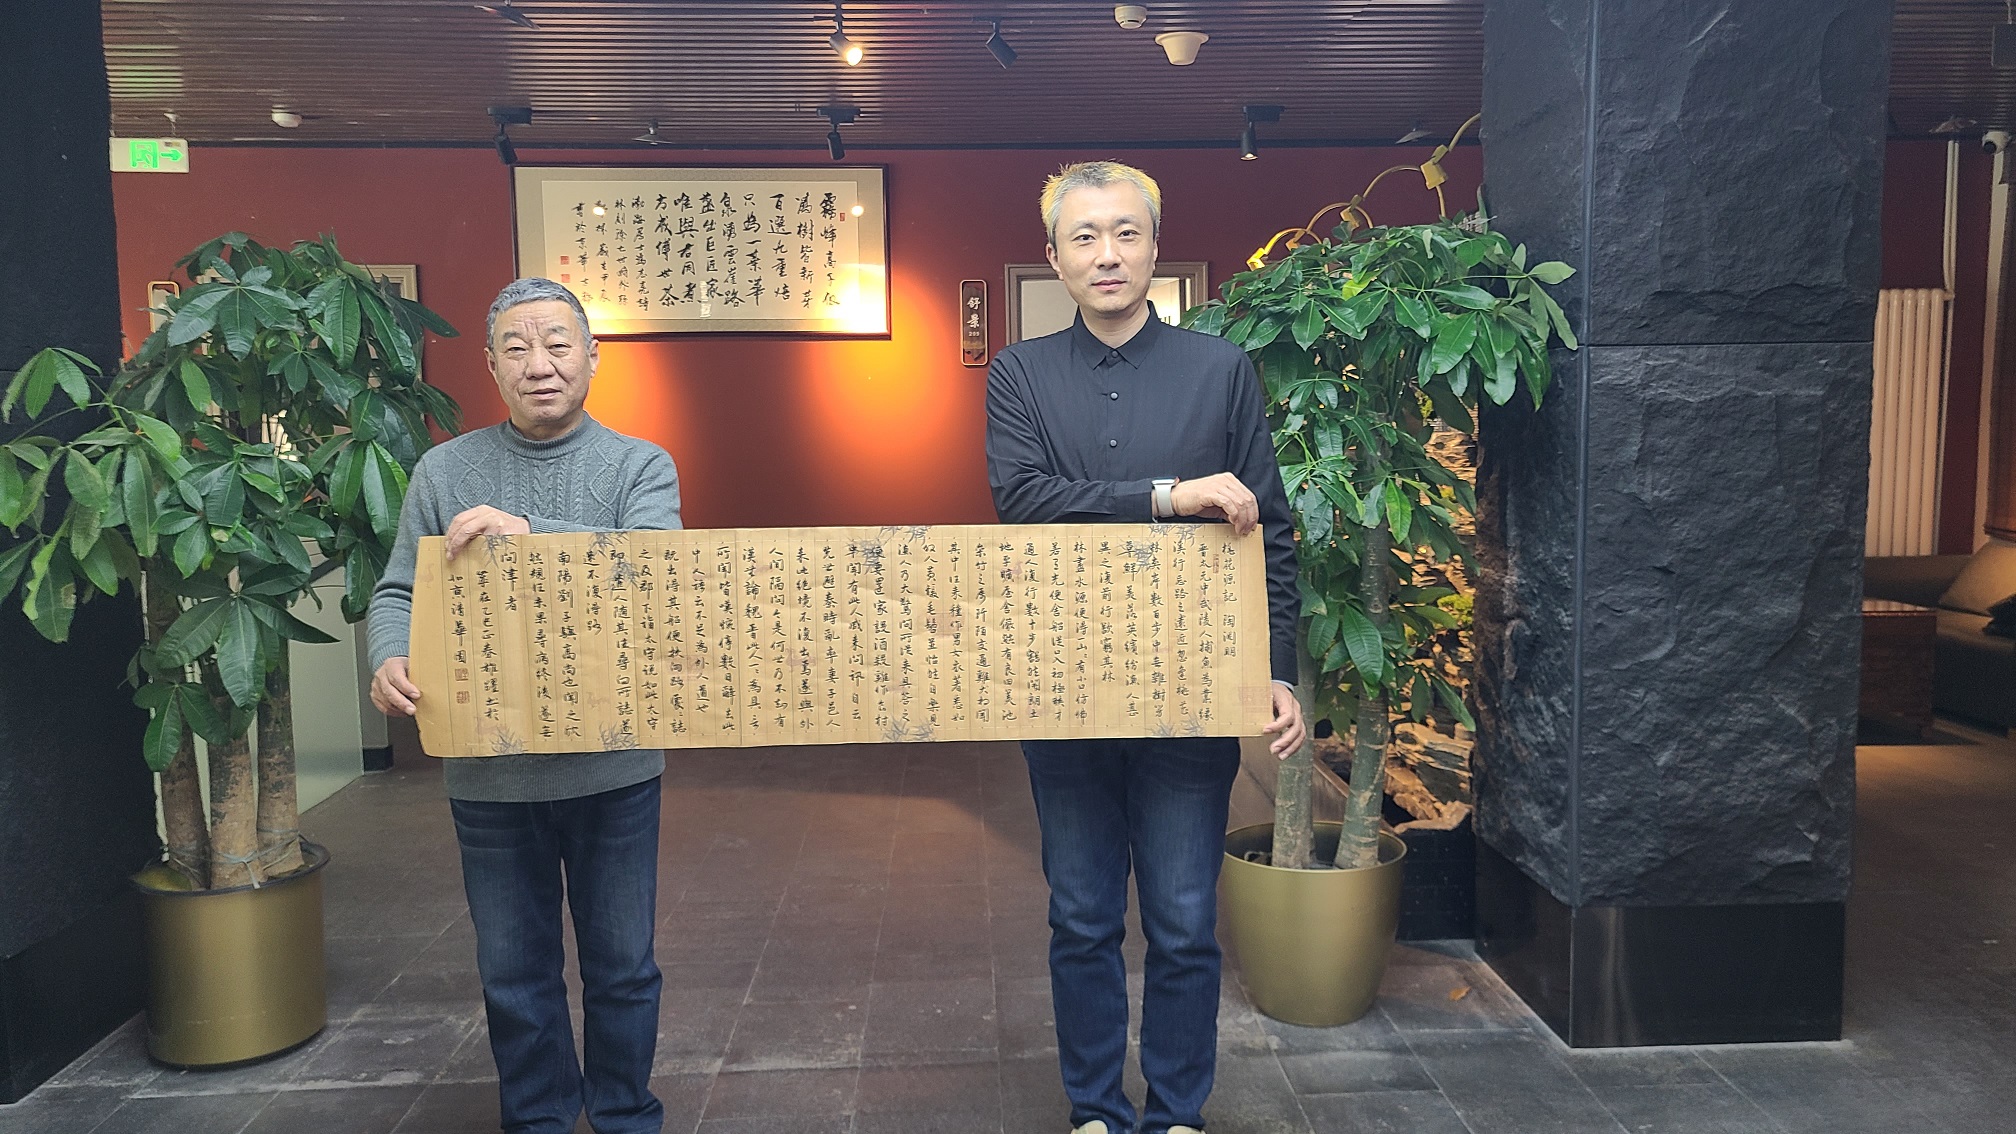 霧峰高千尺
滿樹皆新芽
百選九重焙
只為一葉華
泉湧雲崖路
盞出巨匠家
唯與君同煮
方成傳世茶
舒景
209
桃花源記 陶淵明
晉太元中武陵人捕魚為業緣
溪行忘路之遠近忽逢桃花
林夾岸數百步中無雜樹芳
草鮮美落英繽紛漁人甚
異之復前行欲窮其林
林盡水源便得一山山有小口仿佛
若有光便舍船從口入初極狹才
通人復行數十步豁然開朗土
地平曠屋舍儼然有良田美池
桑竹之屬阡陌交通雞犬相聞
其中往來種作男女衣著悉如
外人黃髮垂髫並怡然自樂見
漁人乃大驚問所從來具答之
便要還家設酒殺雞作食村
中聞有此人咸來問訊自云
先世避秦時亂率妻子邑人
來此絕境不復出焉遂與外
人間隔問今是何世乃不知有
漢無論魏晉此人一一為具言
所聞皆嘆惋停數日辭去此
中人語云不足為外人道也
既出得其船便扶向路處處誌
之及郡下詣太守說如此太守
即遣人隨其往尋向所誌遂
迷不復得路
南陽劉子驥高尚也聞之欣
然規往未果尋病終後遂無
問津者
在乙巳正春
清華園